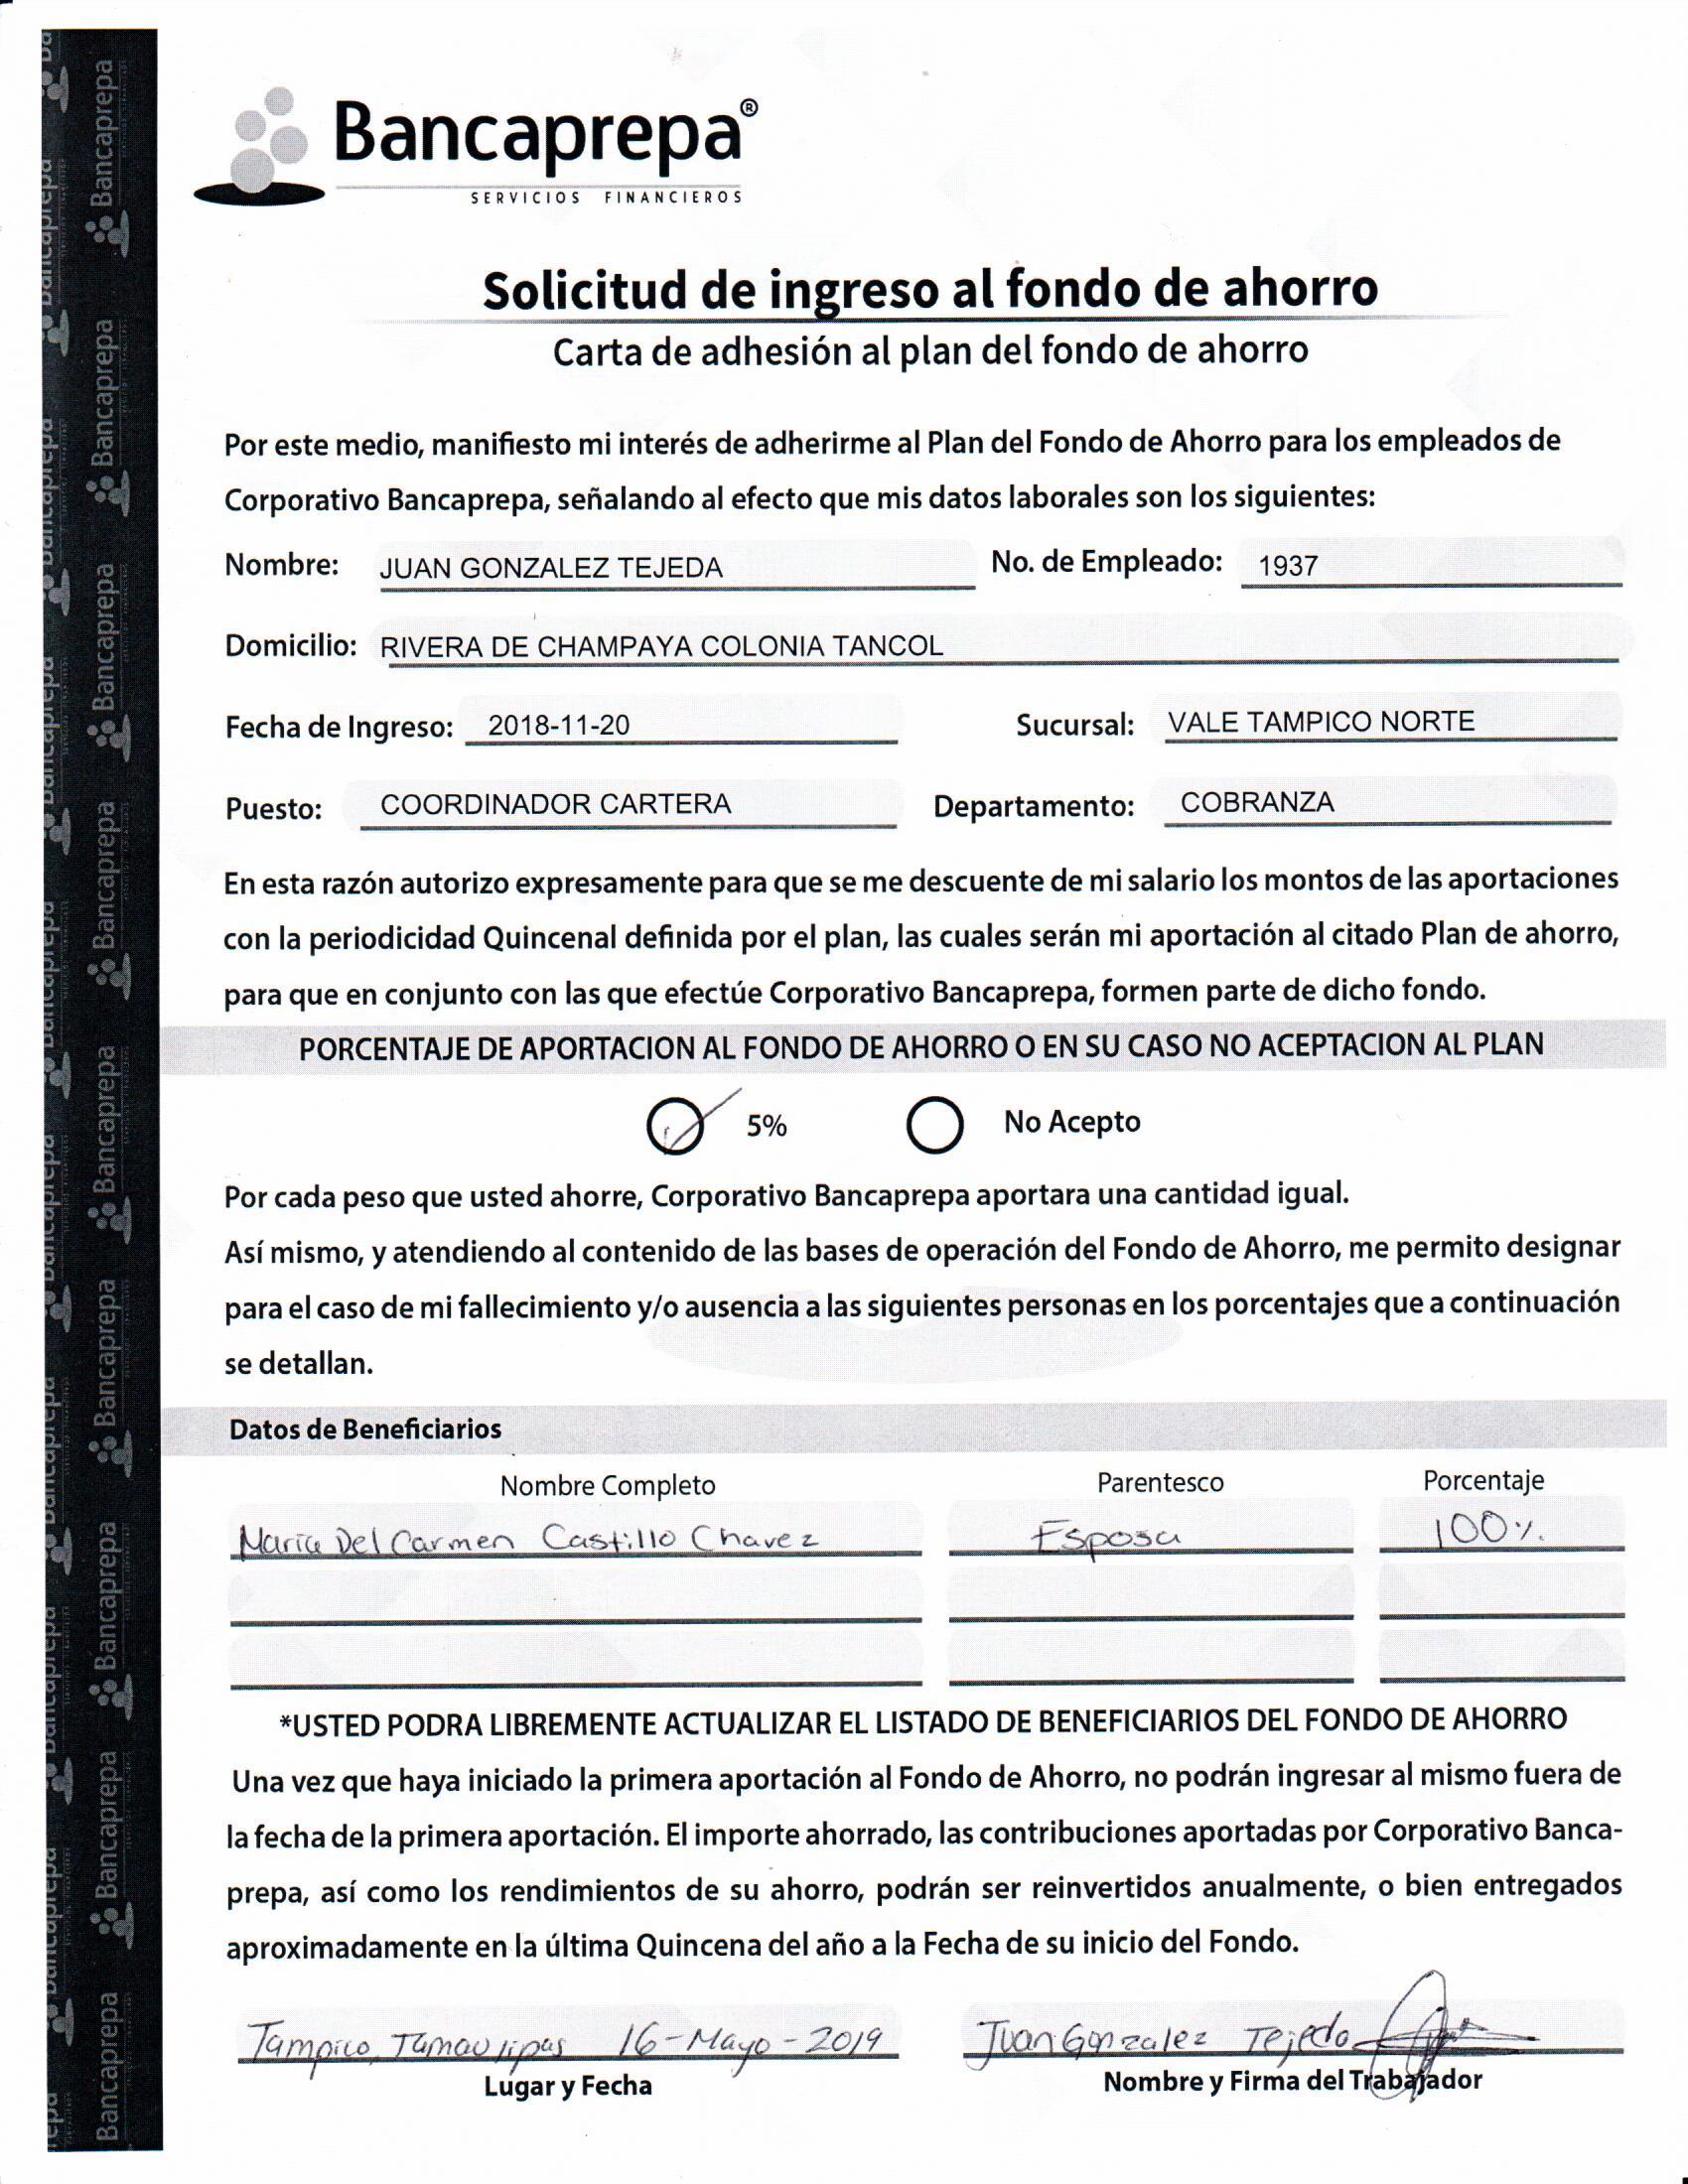 Bancaprepa®
SERVICIOS FINANCIEROS
Solicitud de ingreso al fondo de ahorro
Carta de adhesión al plan del fondo de ahorro
Por este medio, manifiesto mi interés de adherirme al Plan del Fondo de Ahorro para los empleados de
Corporativo Bancaprepa, señalando al efecto que mis datos laborales son los siguientes:
Nombre: JUAN GONZALEZ TEJEDA No. de Empleado: 1937
Domicilio: RIVERA DE CHAMPAYA COLONIA TANCOL
Fecha de Ingreso: 2018-11-20 Sucursal: VALE TAMPICO NORTE
Puesto: COORDINADOR CARTERA Departamento: COBRANZA
En esta razón autorizo expresamente para que se me descuente de mi salario los montos de las aportaciones
con la periodicidad Quincenal definida por el plan, las cuales serán mi aportación al citado Plan de ahorro,
para que en conjunto con las que efectúe Corporativo Bancaprepa, formen parte de dicho fondo.
PORCENTAJE DE APORTACION AL FONDO DE AHORRO O EN SU CASO NO ACEPTACION AL PLAN
5% No Acepto
Por cada peso que usted ahorre, Corporativo Bancaprepa aportara una cantidad igual.
Así mismo, y atendiendo al contenido de las bases de operación del Fondo de Ahorro, me permito designar
para el caso de mi fallecimiento y/o ausencia a las siguientes personas en los porcentajes que a continuación
se detallan.
Datos de Beneficiarios
Nombre Completo Parentesco Porcentaje
Maria Del Carmen Castillo Chavez Esposa 100%
*USTED PODRA LIBREMENTE ACTUALIZAR EL LISTADO DE BENEFICIARIOS DEL FONDO DE AHORRO
Una vez que haya iniciado la primera aportación al Fondo de Ahorro, no podrán ingresar al mismo fuera de
la fecha de la primera aportación. El importe ahorrado, las contribuciones aportadas por Corporativo Banca-
prepa, así como los rendimientos de su ahorro, podrán ser reinvertidos anualmente, o bien entregados
aproximadamente en la última Quincena del año a la Fecha de su inicio del Fondo.
Tampico, Tamaulipas 16-Mayo-2019 Juan Gonzalez Tejeda
Lugar y Fecha Nombre y Firma del Trabajador